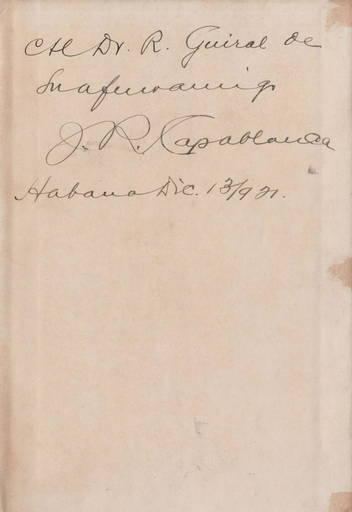 Al Dr. R. Guiral de
su afmo amigo
J. R. Capablanca
Habana Dic. 13/921.